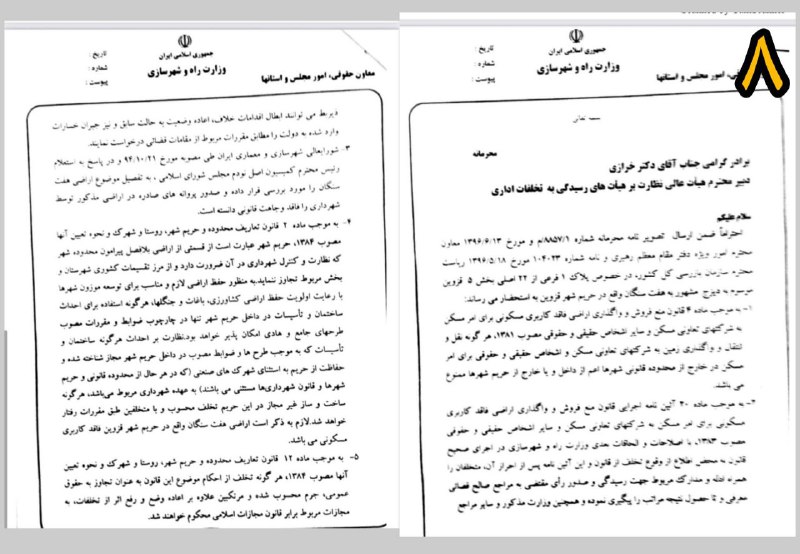 جمهوری اسلامی ایران
وزارت راه و شهرسازی
تاریخ :
شماره :
پیوست :
حقوقی، امور مجلس و استانها
۸
بسمه تعالی
محرمانه
برادر گرامی جناب آقای دکتر خرازی
دبیر محترم هیأت عالی نظارت بر هیأت های رسیدگی به تخلفات اداری
سلام علیکم
احتراماً ضمن ارسال تصویر نامه محرمانه شماره ۸۸۵۷/۱/م و مورخ ۱۳۹۶/۶/۱۳ معاون
محترم امور ویژه دفتر مقام معظم رهبری و نامه شماره ۱۰۴۰۲۳ مورخ ۱۳۹۶/۵/۱۸ ریاست
محترم سازمان بازرسی کل کشور، در خصوص پلاک ۱ فرعی از ۲۲ اصلی بخش ۵ قزوین
موسوم به دیزج مشهور به هفت سنگان واقع در حریم شهر قزوین به استحضار می رساند:
۱- به موجب ماده ۴ قانون منع فروش و واگذاری اراضی فاقد کاربری مسکونی برای امر مسکن
به شرکتهای تعاونی مسکن و سایر اشخاص حقیقی و حقوقی مصوب ۱۳۸۱، هر گونه نقل و
انتقال و واگذاری زمین به شرکتهای تعاونی مسکن و اشخاص حقیقی و حقوقی برای امر
مسکن در خارج از محدوده قانونی شهرها اعم از داخل و یا خارج از حریم شهرها ممنوع
می باشد.
۲- به موجب ماده ۳۰ آئین نامه اجرایی قانون منع فروش و واگذاری اراضی فاقد کاربری
مسکونی برای امر مسکن به شرکتهای تعاونی مسکن و سایر اشخاص حقیقی و حقوقی
مصوب ۱۳۸۳، با اصلاحات و الحاقات بعدی وزارت راه و شهرسازی در اجرای صحیح
قانون به محض اطلاع از وقوع تخلف از قانون و این آئین نامه پس از احراز آن، متخلفان را
همراه ادله و مدارک مربوط جهت رسیدگی و صدور رأی مقتضی به مراجع صالح قضائی
معرفی و تا حصول نتیجه مراتب را پیگیری نموده و همچنین وزارت مذکور و سایر مراجع
جمهوری اسلامی ایران
وزارت راه و شهرسازی
تاریخ :
شماره :
پیوست :
معاون حقوقی، امور مجلس و استانها
ذیربط می توانند ابطال اقدامات خلاف، اعاده وضعیت به حالت سابق و نیز جبران خسارات
وارد شده به دولت را مطابق مقررات مربوط از مقامات قضائی درخواست نمایند.
۳- شورایعالی شهرسازی و معماری ایران طی مصوبه مورخ ۹۴/۱۰/۲۱ و در پاسخ به استعلام
رئیس محترم کمیسیون اصل نودم مجلس شورای اسلامی ، به تفصیل موضوع اراضی هفت
سنگان را مورد بررسی قرار داده و صدور پروانه های صادره در اراضی مذکور توسط
شهرداری را فاقد وجاهت قانونی دانسته است.
۴- به موجب ماده ۲ قانون تعاریف محدوده و حریم شهر، روستا و شهرک و نحوه تعیین آنها
مصوب ۱۳۸۴، حریم شهر عبارت است از قسمتی از اراضی بلافصل پیرامون محدوده شهر
که نظارت و کنترل شهرداری در آن ضرورت دارد و از مرز تقسیمات کشوری شهرستان و
بخش مربوط تجاوز ننماید.به منظور حفظ اراضی لازم و مناسب برای توسعه موزون شهرها
با رعایت اولویت حفظ اراضی کشاورزی، باغات و جنگلها، هرگونه استفاده برای احداث
ساختمان و تأسیسات در داخل حریم شهر تنها در چارچوب ضوابط و مقررات مصوب
طرحهای جامع و هادی امکان پذیر خواهد بود.نظارت بر احداث هرگونه ساختمان و
تأسیسات که به موجب طرح ها و ضوابط مصوب در داخل حریم شهر مجاز شناخته شده و
حفاظت از حریم به استثنای شهرک های صنعتی (که در هر حال از محدوده قانونی و حریم
شهرها و قانون شهرداری‌ها مستثنی می باشند) به عهده شهرداری مربوط می‌باشد، هرگونه
ساخت و ساز غیر مجاز در این حریم تخلف محسوب و با متخلفین طبق مقررات رفتار
خواهد شد.لازم به ذکر است اراضی هفت سنگان واقع در حریم شهر قزوین فاقد کاربری
مسکونی می باشد.
۵- به موجب ماده ۱۲ قانون تعاریف محدوده و حریم شهر، روستا و شهرک و نحوه تعیین
آنها مصوب ۱۳۸۴، هر گونه تخلف از احکام موضوع این قانون به عنوان تجاوز به حقوق
عمومی، جرم محسوب شده و مرتکبین علاوه بر اعاده وضع و رفع اثر از تخلفات، به
مجازات مربوط برابر قانون مجازات اسلامی محکوم خواهند شد.